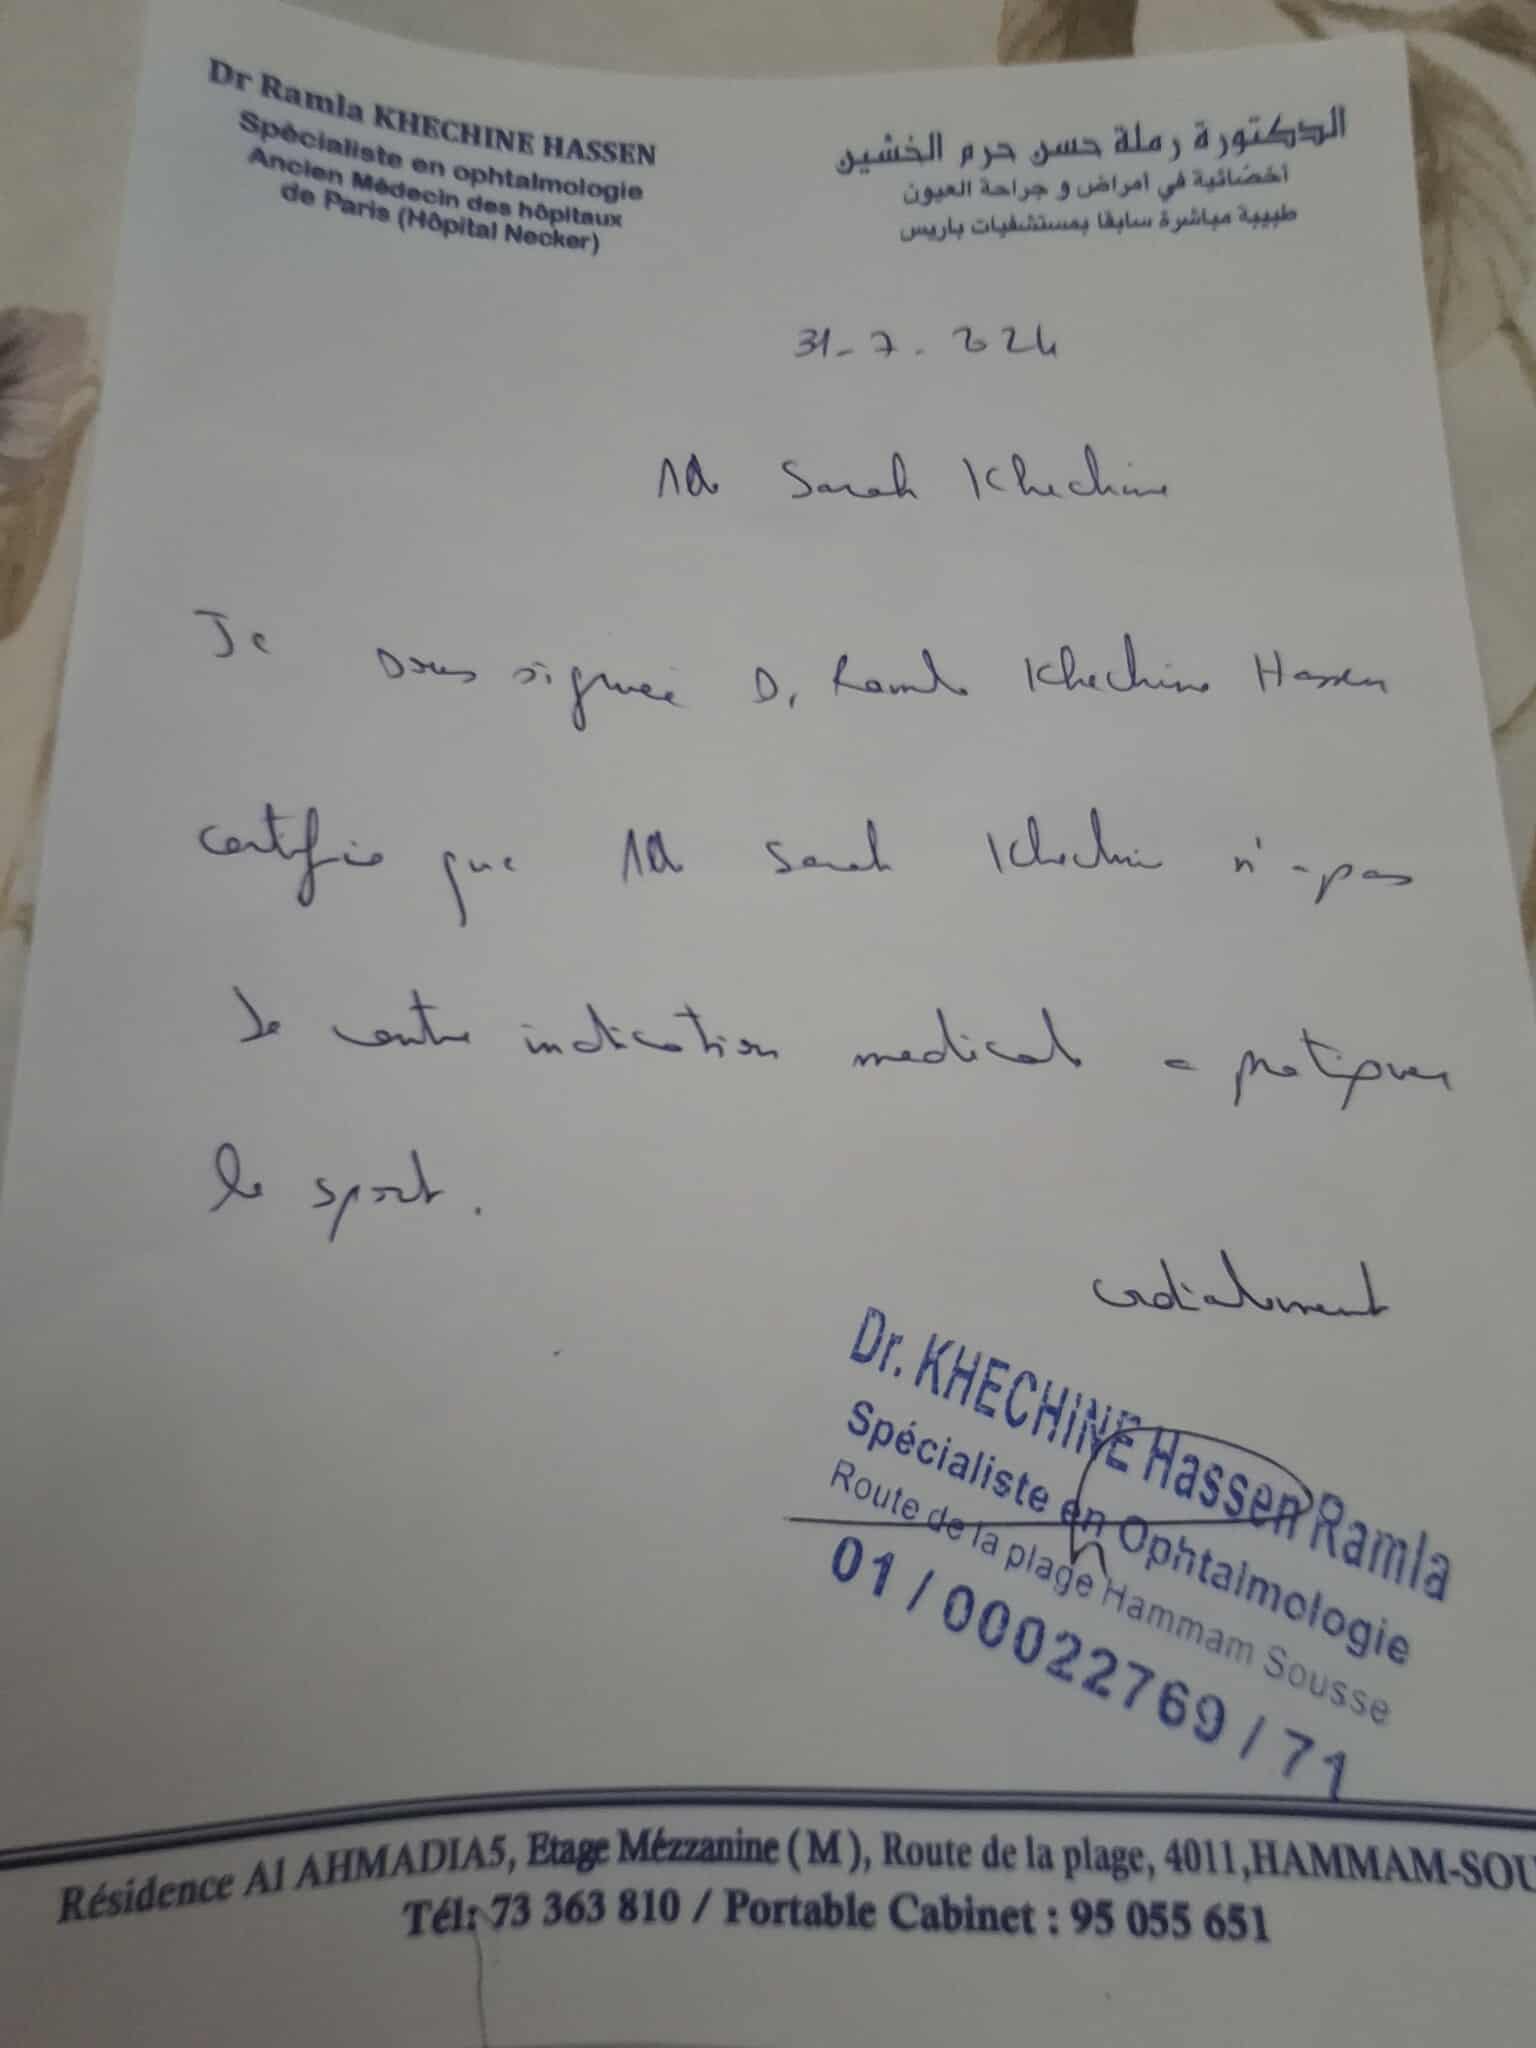 Dr Ramla KHECHINE HASSEN
Spécialiste en ophtalmologie
Ancien Médecin des hôpitaux
de Paris (Hôpital Necker)
الدكتورة رملة حسن حرم الخشين
أخصّائية في أمراض و جراحة العيون
طبيبة مباشرة سابقا بمستشفيات باريس
31-7-2024
Sarah Khechine
Je sous signée Dr Ramla Khechine Hassen
certifie que Sarah Khechine n'a pas
de contre indication medicale a pratiquer
le sport.
cordialement
Dr. KHECHINE Hassen Ramla
Spécialiste en Ophtalmologie
Route de la plage Hammam Sousse
01 / 00022769 / 71
Résidence Al AHMADIA5, Etage Mézzanine (M), Route de la plage, 4011,HAMMAM-SOU
Tél: 73 363 810 / Portable Cabinet : 95 055 651